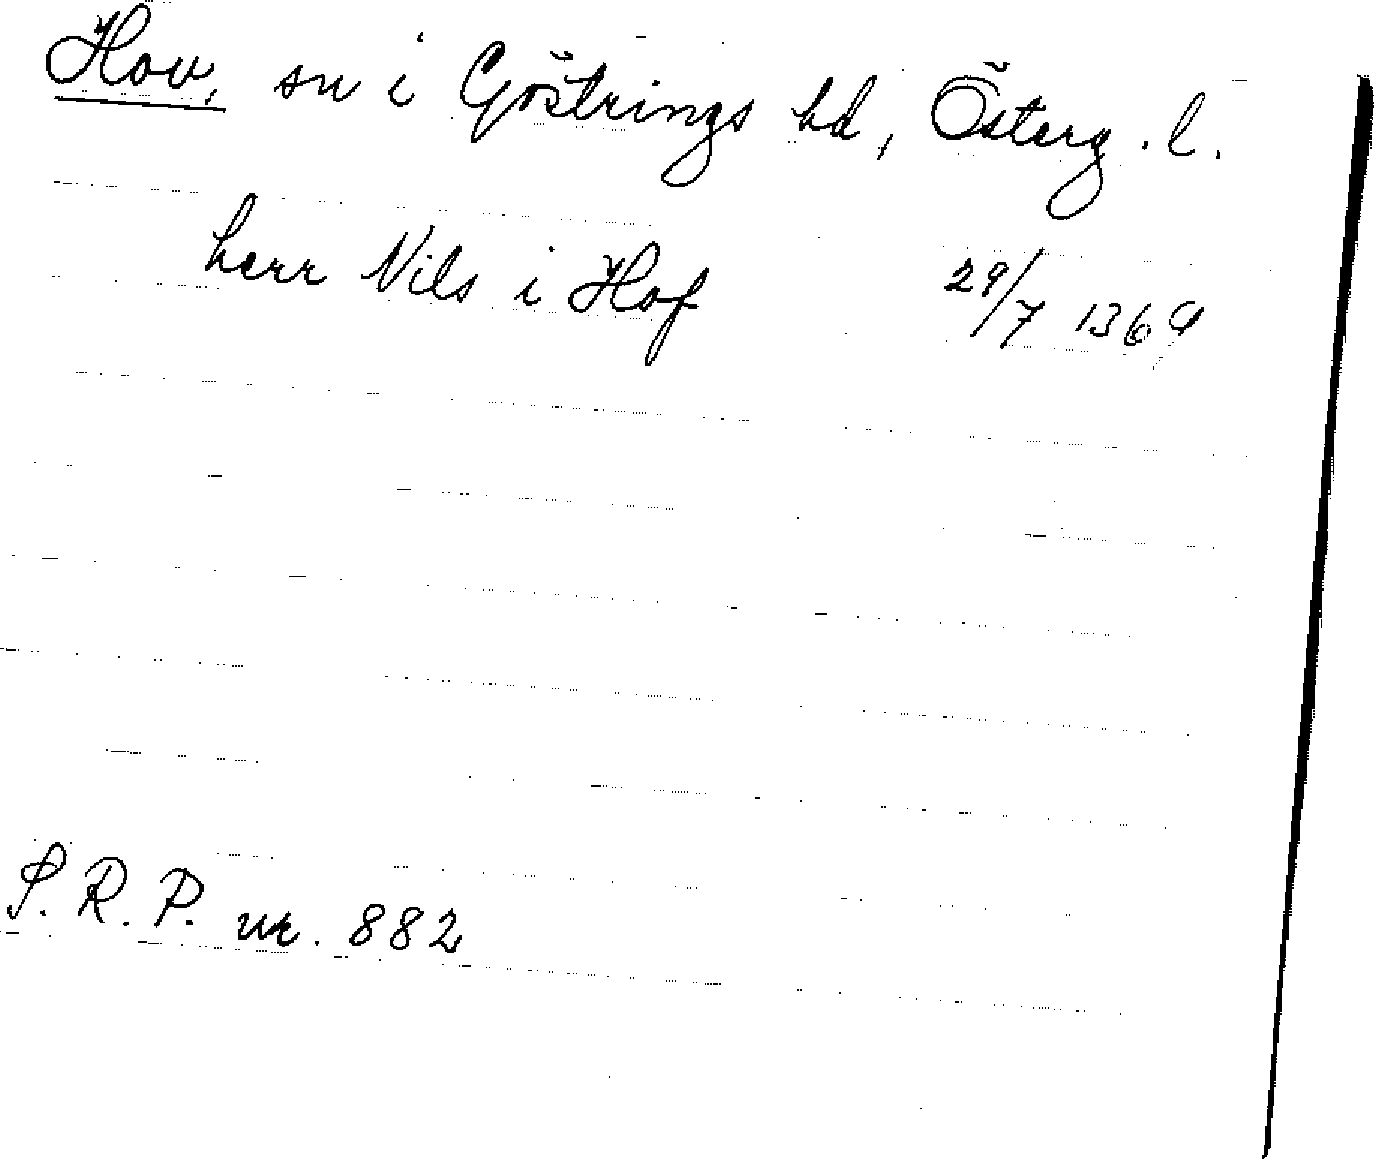 Hov, sn i Göstrings hd, Österg. l.
herr Nils i Hof 29/7 1369
S. R. P. nr. 882